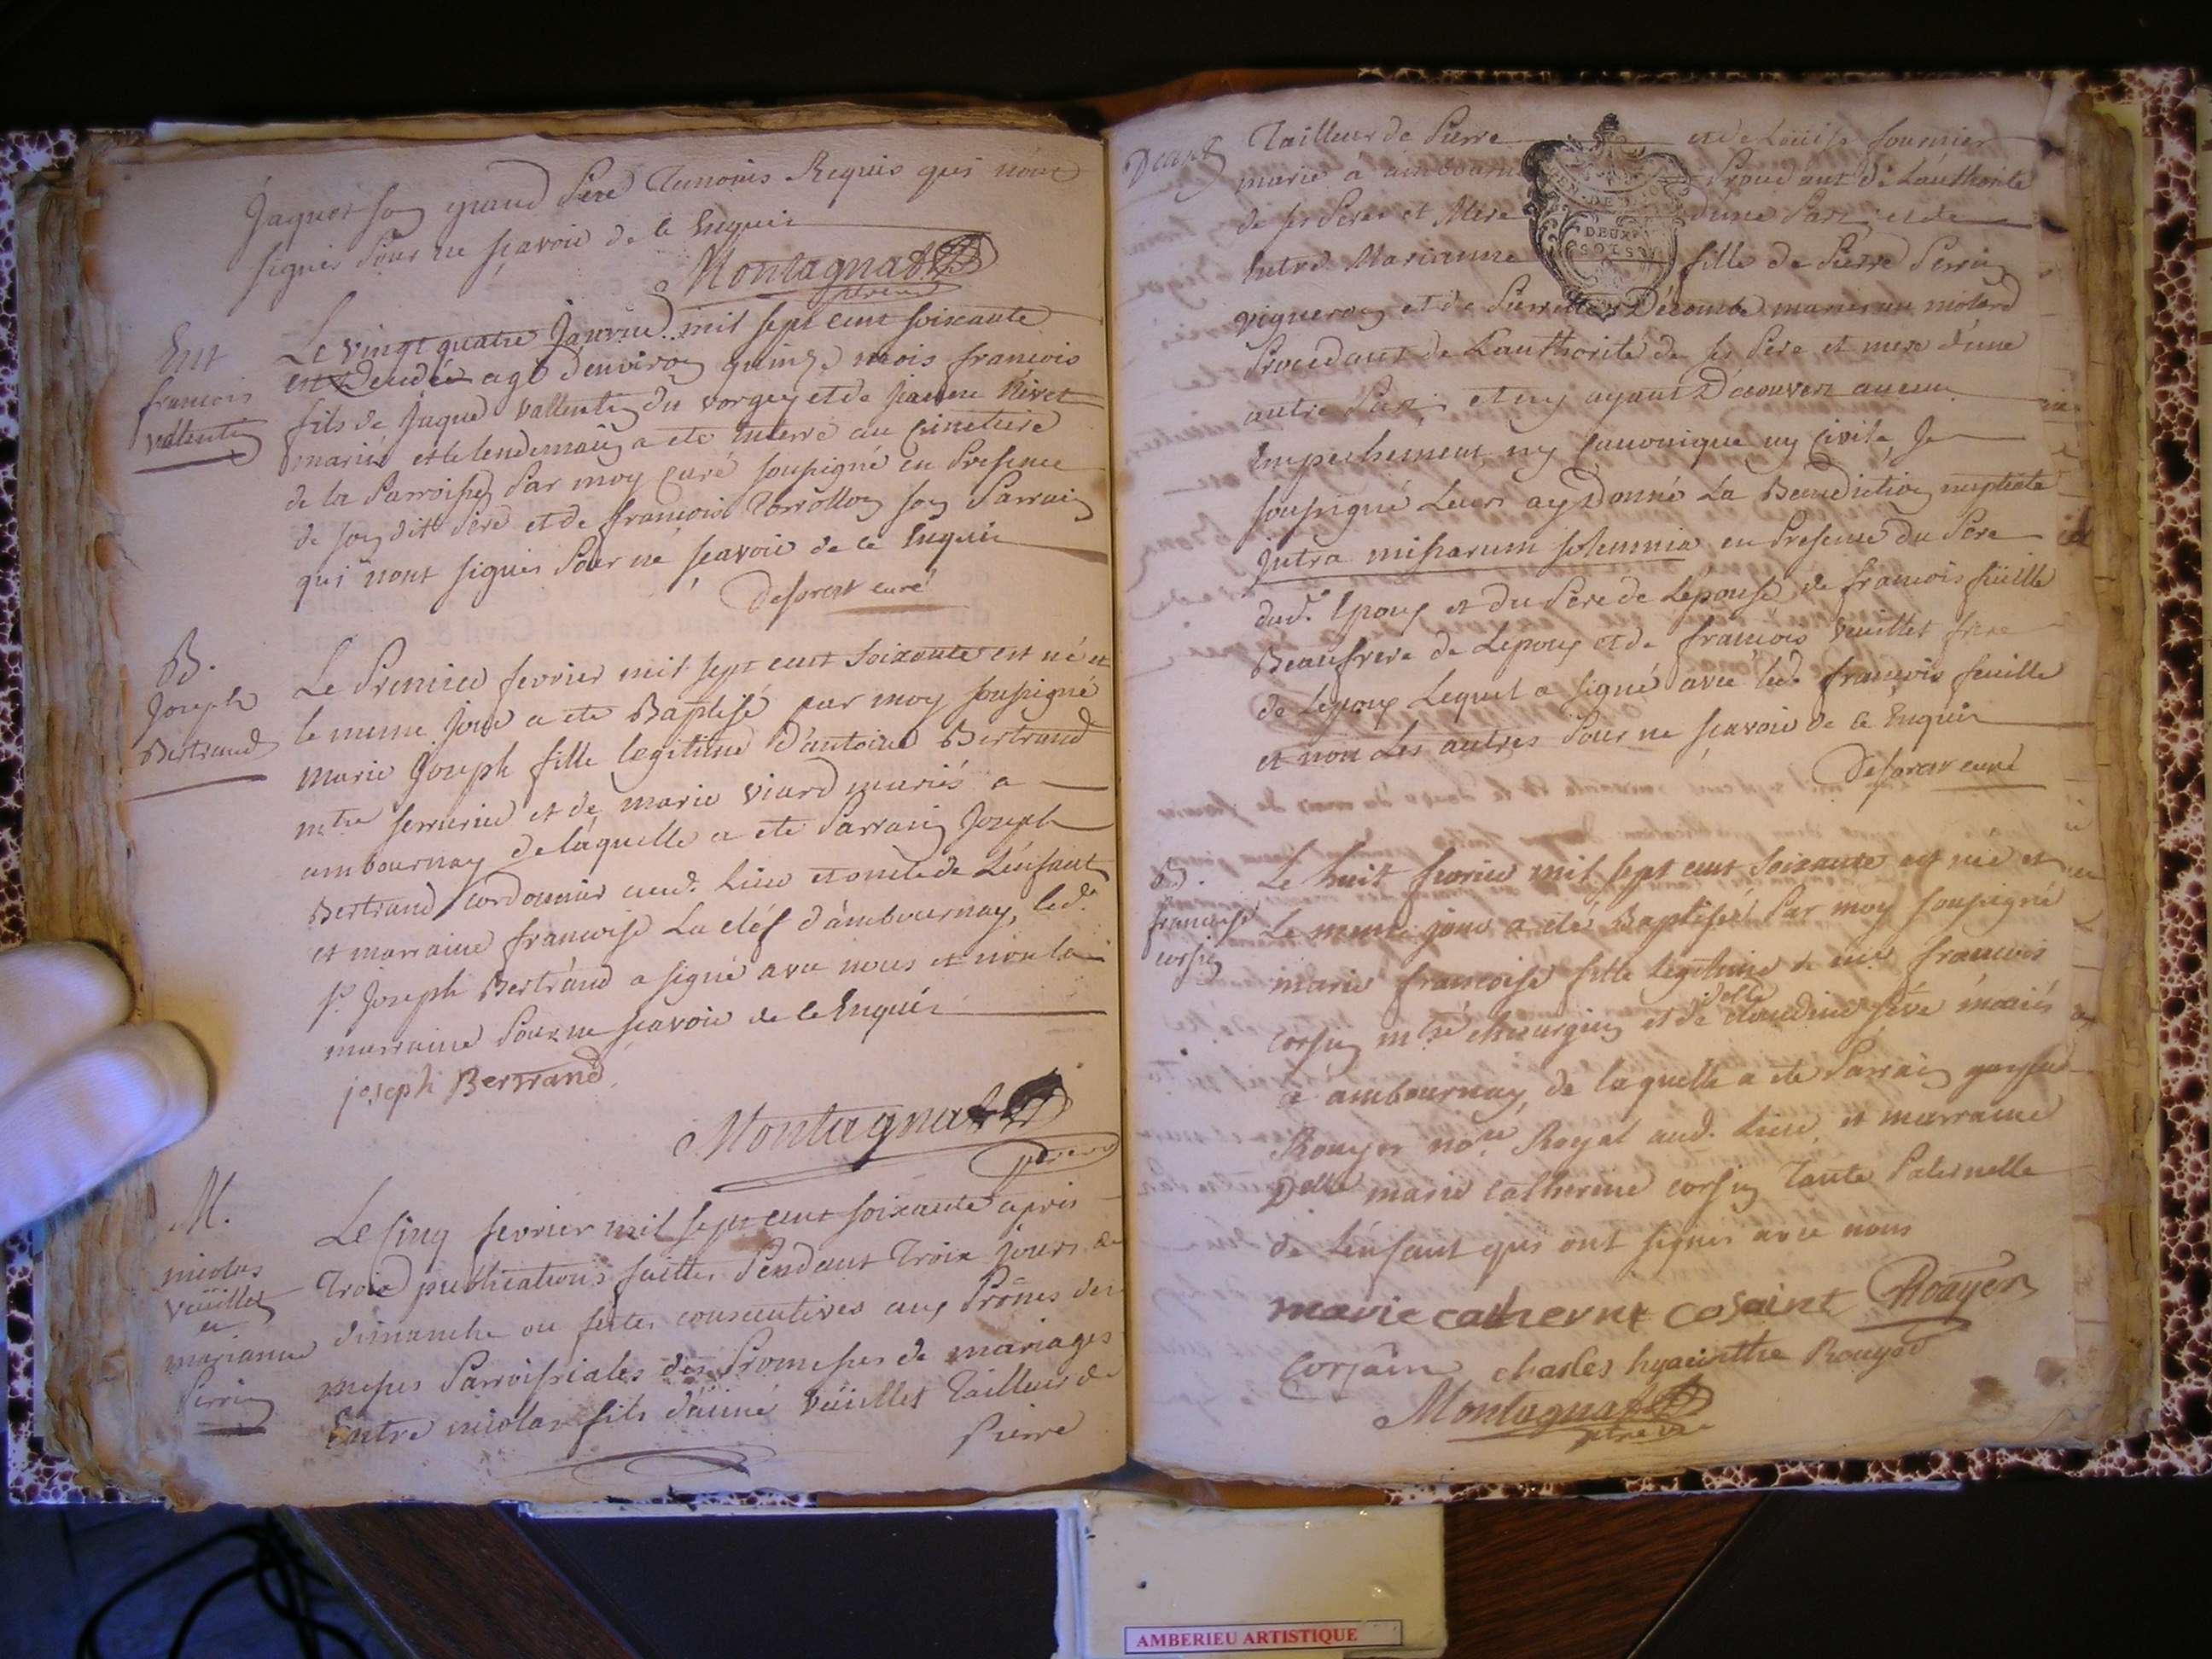 Jaquet son grand Père Temoins Requis qui n'ont
signés Pour ne sçavoir de ce Enquis
Montagnat
vicaire
Ent
francois
vallentin
Le vingt quatre Janvier mil sept cent soixante
est Decedé agé d'environ quinze mois francois
fils de Jaque vallentin du vorgey et de jeanne Rivet
mariés et le lendemain a ete enterré au Cimetiere
de la Parroisse Par moy Curé soussigné en Presence
de son dit Pere et de francois Torrollon son Parrain
qui n'ont signés Pour ne sçavoir de ce Enquis
Deforest curé
B.
Joseph
Bertrand
Le Premier fevrier mil sept cent soixante est né et
le meme jour a ete Baptisé par moy soussigné
marie Joseph fille legitime d'antoine Bertrand
mtre serrurier et de marie viard mariés a
ambournay de laquelle a ete Parrain Joseph
Bertrand cordonnier aud. Lieu et oncle de L'enfant
et marraine francoise La clef d'ambournay, led.
sr. Joseph Bertrand a signé avec nous et non la
marraine Pour ne sçavoir de ce Enquis
joseph Bertrand
Montagnat
vicaire
M.
nicolas
veüillet
et
marianne
Perrin
Le cinq fevrier mil sept cent soixante après
Trois publications faittes Pendant Trois jours de
dimanche ou fetes consecutives aux Prônes des
messes Parroissiales des Promesses de mariages
Entre nicolas fils d'aimé veüillet Tailleur de
Pierre
Deux
Tailleur de Pierre et de Loüise fournier
marié à ambournay Procedant de L'authorité
de ses Peres et Mere d'une Part, et de
Entre Marianne fille de Pierre Perrin
vigneron et de Pierrette Decombe mariés au molard
Procedant de L'authorité de ses Pere et mere d'une
autre Part, et n'y ayant Découvert aucun
Empechement ny Canonique ny Civile, Je
soussigné Leurs ay Donné La Benediction nuptiale
Intra missarum solemnia en Presence du Père
dud. Epoux et du Père de L'epouse, de francois füille
Beaufrere de L'epoux et de francois veüillet frere
de L'epoux Lequel a signé avec led. francois feuille
et non Les autres Pour ne sçavoir de ce Enquis
Deforest curé
francoise
corsin
Le huit fevrier mil sept cent soixante est née et
Le meme jour a été Baptisée Par moy soussigné
marie francoise fille legitime de francois
corsin mtre chirurgien et de delle claudine sève mariés
à ambournay, de laquelle a ete Parrain
Rouyer nore. Royal aud. Lieu, et marraine
Delle marie catherine corsin Tante Paternelle
de L'enfant qui ont signés avec nous
marie catherine cosaint Rouyer
Corsain charles hyacinthe Rouyer
Montagnat
vicaire
DEUX
SOLS
AMBERIEU ARTISTIQUE